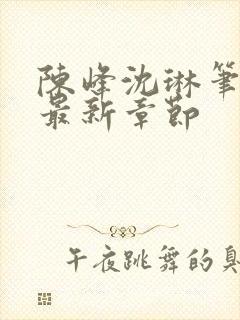 陳峰沈琳筆
最新章節
午夜跳舞的